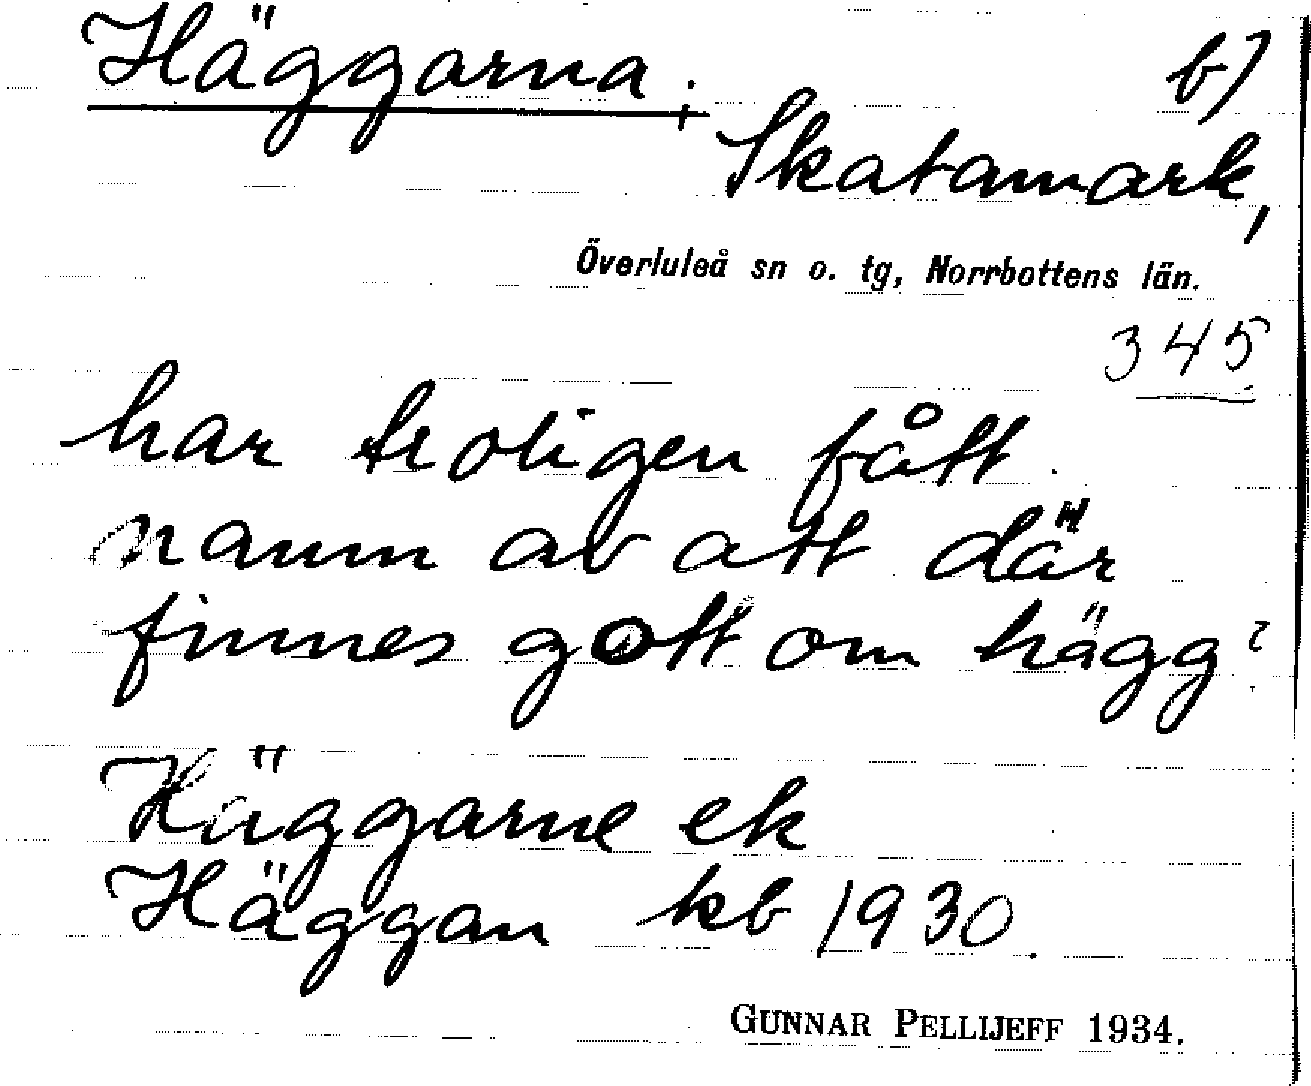 Häggarna; b)
Skatamark,
Överluleå sn o. tg, Norrbottens län.
345
har troligen fått
namn av att där
finnes gott om hägg?
Häggarne ek
Häggan kb 1930.
GUNNAR PELLIJEFF 1934.